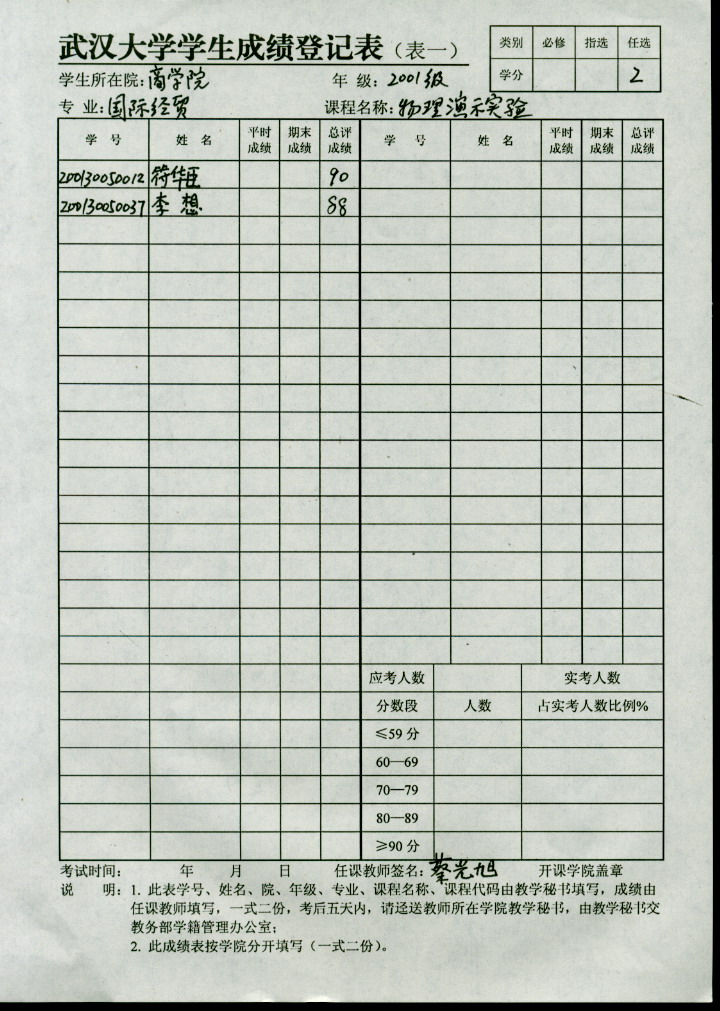 武汉大学学生成绩登记表（表一）
类别 必修 指选 任选
学分 2
学生所在院:商学院 年 级:2001级
专 业:国际经贸 课程名称:物理演示实验
学 号 姓 名 平时成绩 期末成绩 总评成绩 学 号 姓 名 平时成绩 期末成绩 总评成绩
200130050012 符华臣 90
200130050037 李想 88
应考人数 实考人数
分数段 人数 占实考人数比例%
≤59 分
60—69
70—79
80—89
≥90 分
考试时间: 年 月 日 任课教师签名:蔡光旭 开课学院盖章
说 明:1. 此表学号、姓名、院、年级、专业、课程名称、课程代码由教学秘书填写，成绩由
任课教师填写，一式二份，考后五天内，请迳送教师所在学院教学秘书，由教学秘书交
教务部学籍管理办公室；
2. 此成绩表按学院分开填写（一式二份）。